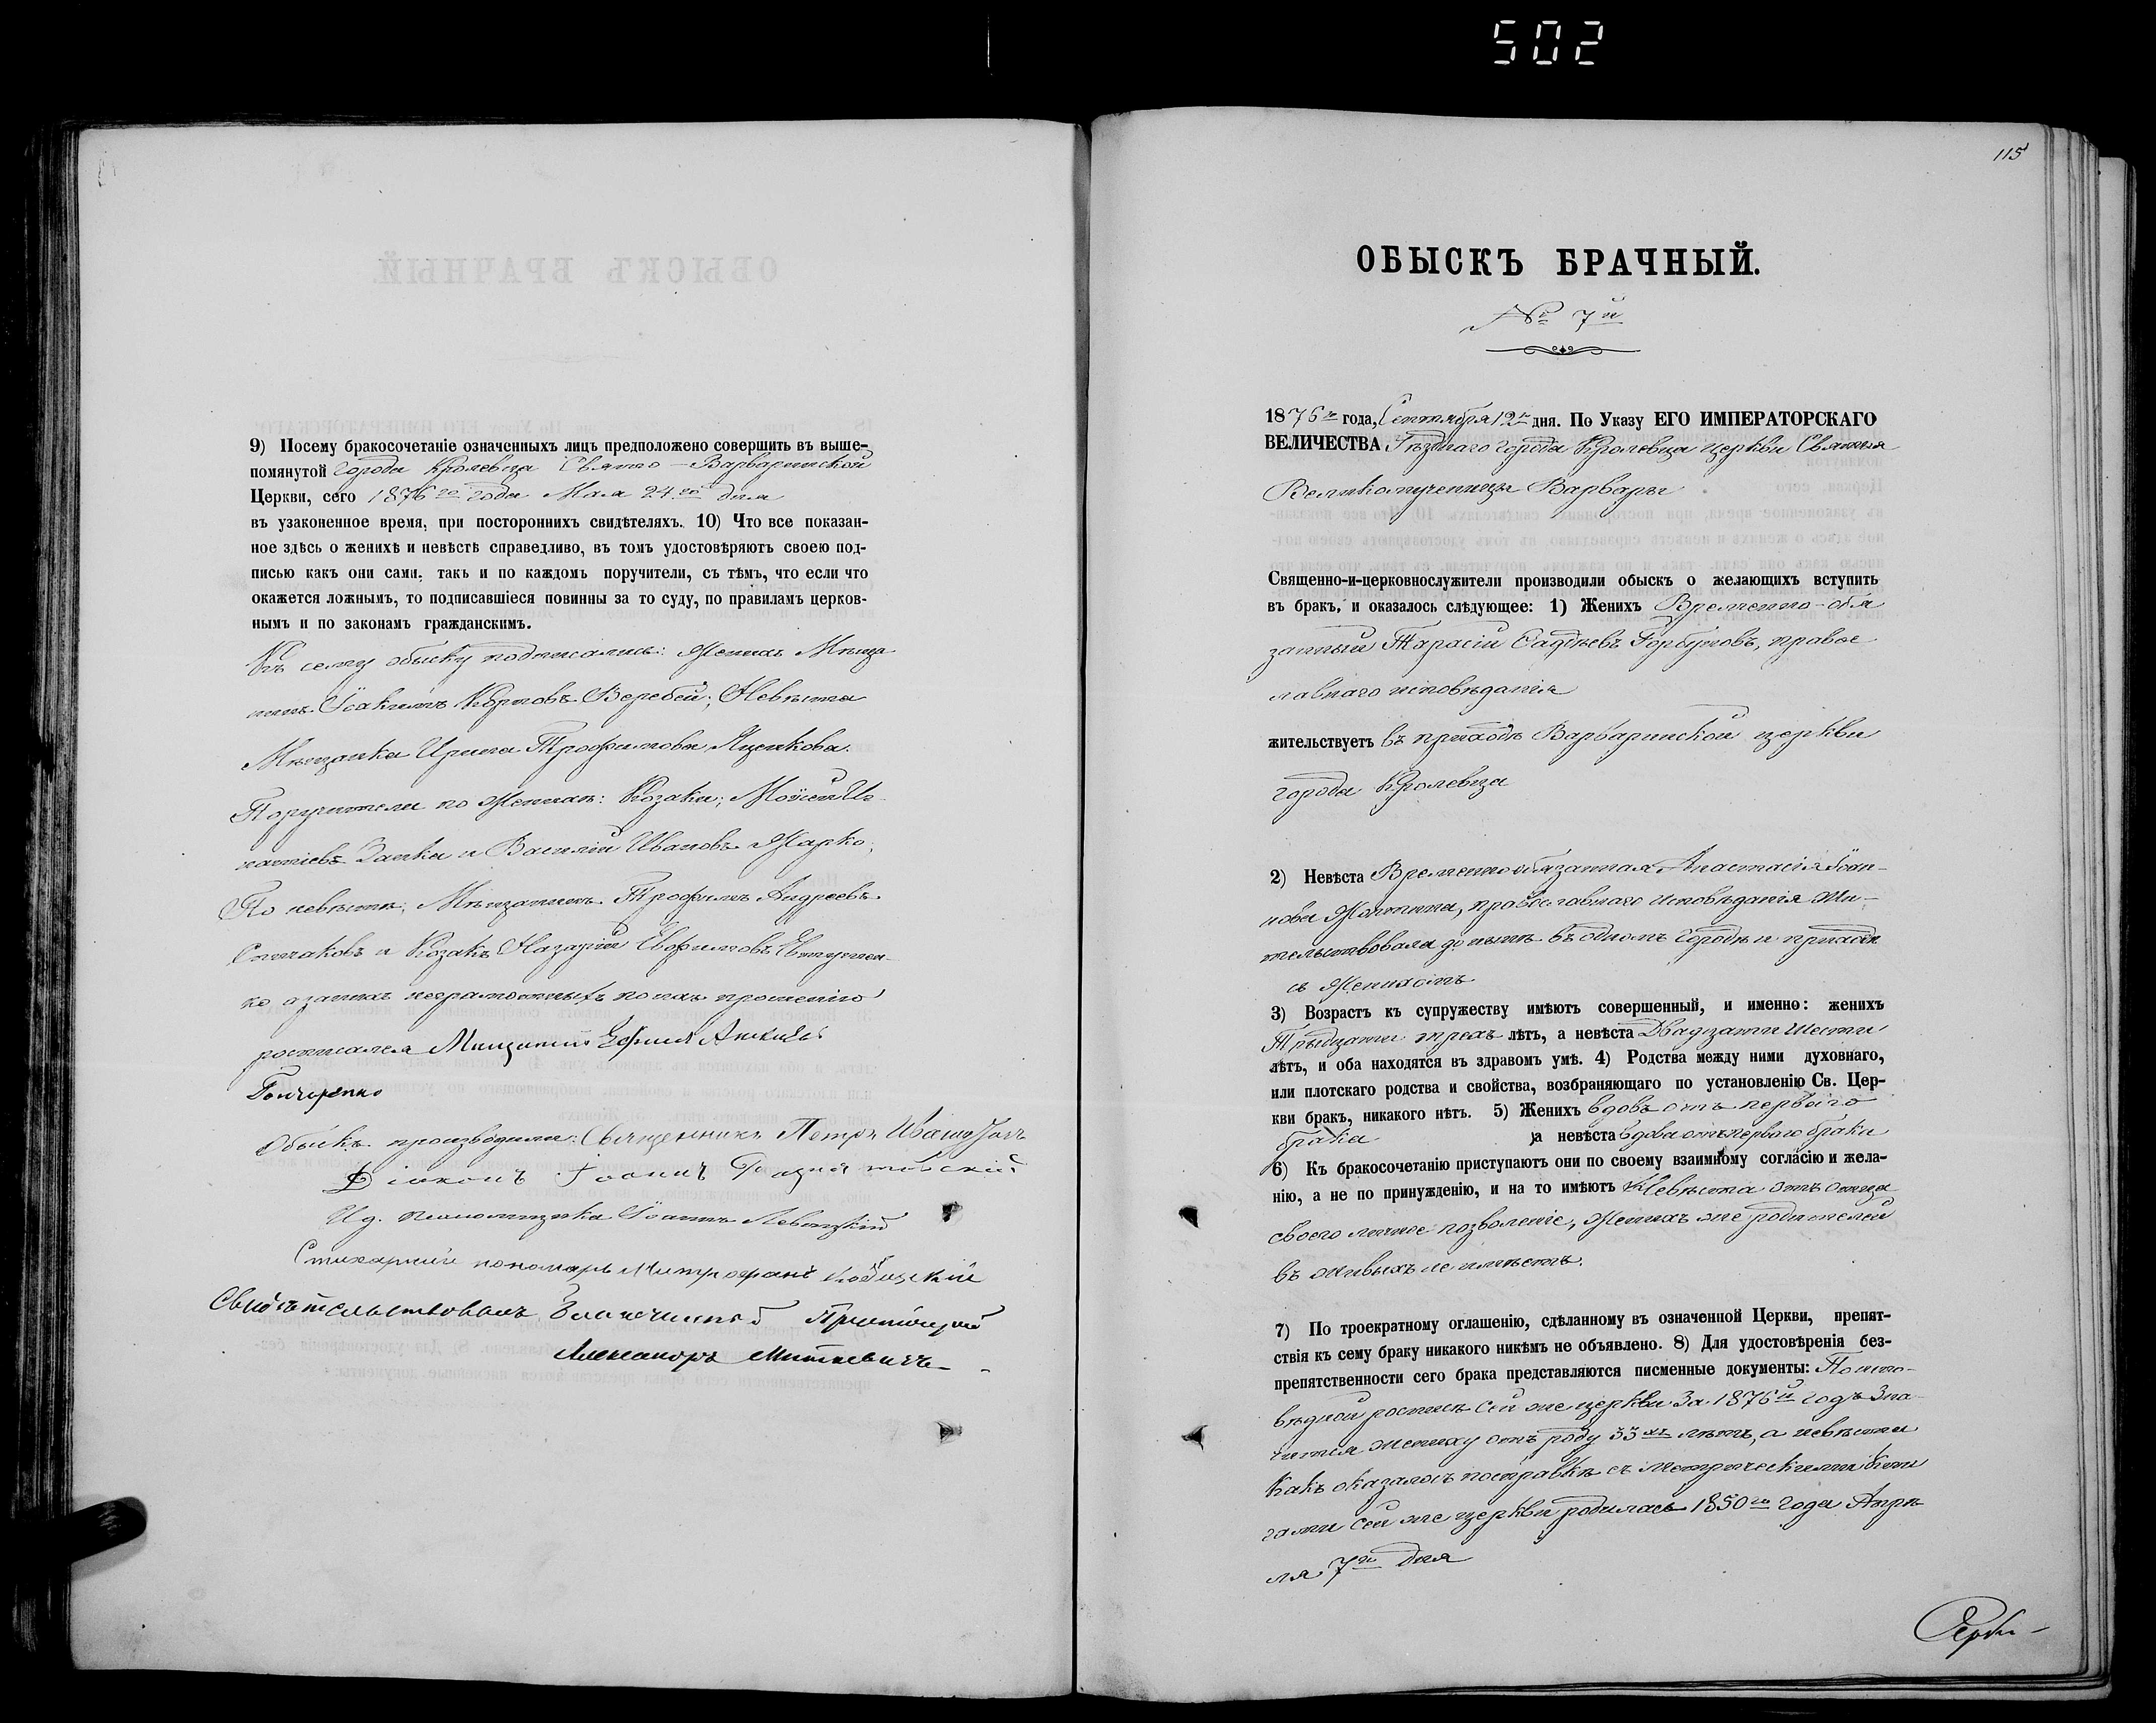 502
9) Посему бракосочетаніе означенныхъ лицъ предположено совершить въ выше-
помянутой города Кролевца Свято-Варваринской
Церкви, сего 1876го года Мая 24го дня
въ узаконенное время, при постороннихъ свидѣтеляхъ. 10) Что все показан-
ное здѣсь о женихѣ и невѣстѣ справедливо, въ томъ удостовѣряютъ своею под-
писью какъ они сами, такъ и по каждомъ поручители, съ тѣмъ, что если что
окажется ложнымъ, то подписавшіеся повинны за то суду, по правиламъ церков-
нымъ и по законамъ гражданскимъ.
Къ сему обыску подписались: Женихъ Мѣща
нинъ Іоакимъ Карповъ Веребей; Невѣста
Мѣщанка Ирина Трофимова
Поручители по женихѣ: Козаки; Мойсей Иг-
натіевъ Заика и Василій Ивановъ Жарко;
По невѣстѣ; Мѣщанинъ Трофимъ Андреевъ
и Козакъ Назарій Евфимовъ Евтушен-
ко а за нихъ неграмотныхъ по ихъ прошенію
росписался Мищанинъ Ефимъ
Гончаренко
Обыскъ производили: Священникъ Петръ
Діаконъ Іоаннъ
И д. псаломщика Іоаннъ Левицкій
Стихарный пономарь Митрофанъ
Свидѣтельствовалъ Благочинный Протоіерей
Александръ Миткевичъ
115
ОБЫСКЪ БРАЧНЫЙ.
№ 7й
1876го года, Сентября 12го дня. По Указу ЕГО ИМПЕРАТОРСКАГО
ВЕЛИЧЕСТВА Уѣзднаго города Кролевца церкви Святыя
Великомученицы Варвары
Священно-и-церковнослужители производили обыскъ о желающихъ вступить
въ бракъ, и оказалось слѣдующее: 1) Женихъ Временно-обя
занный Тарасій Горбуновъ, правос
лавнаго исповѣданія
жительствуетъ въ приходѣ Варваринской церкви
города Кролевца
2) Невѣста Временнообязанная Анастасія Іоан-
нова, православнаго исповѣданія жи-
тельствовала до нынѣ въ одномъ городѣ и приходѣ
съ женихомъ
3) Возрастъ къ супружеству имѣютъ совершенный, и именно: женихъ
Тридцати трехъ лѣтъ, а невѣста Двадцати шести
лѣтъ, и оба находятся въ здравомъ умѣ. 4) Родства между ними духовнаго,
или плотскаго родства и свойства, возбраняющаго по установленію Св. Цер-
кви бракъ, никакого нѣтъ. 5) Женихъ вдовъ отъ перваго
брака а невѣста вдова отъ перваго брака
6) Къ бракосочетанію приступаютъ они по своему взаимному согласію и жела-
нію, а не по принужденію, и на то имѣютъ Невѣста отъ отца
своего личное позволеніе, женихъ же родителей
въ живыхъ не имѣетъ.
7) По троекратному оглашенію, сдѣланному въ означенной Церкви, препят-
ствія къ сему браку никакого никѣмъ не объявлено. 8) Для удостовѣренія без-
препятственности сего брака представляются писменные документы: По испо-
вѣдной росписѣ сей же церкви за 1876й годъ зна-
чится жениху отъ роду 33хъ лѣтъ, а невѣста
какъ оказалось по справкѣ съ метрическими кни
гами сей же церкви родилась 1850го года Апрѣ-
ля 7го дня